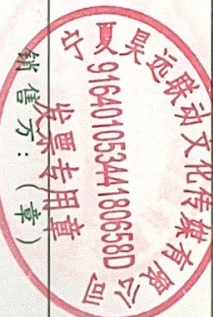 宁夏昊远联动文化传媒有限公司
91640105344180658D
发票专用章
销售方：（章）